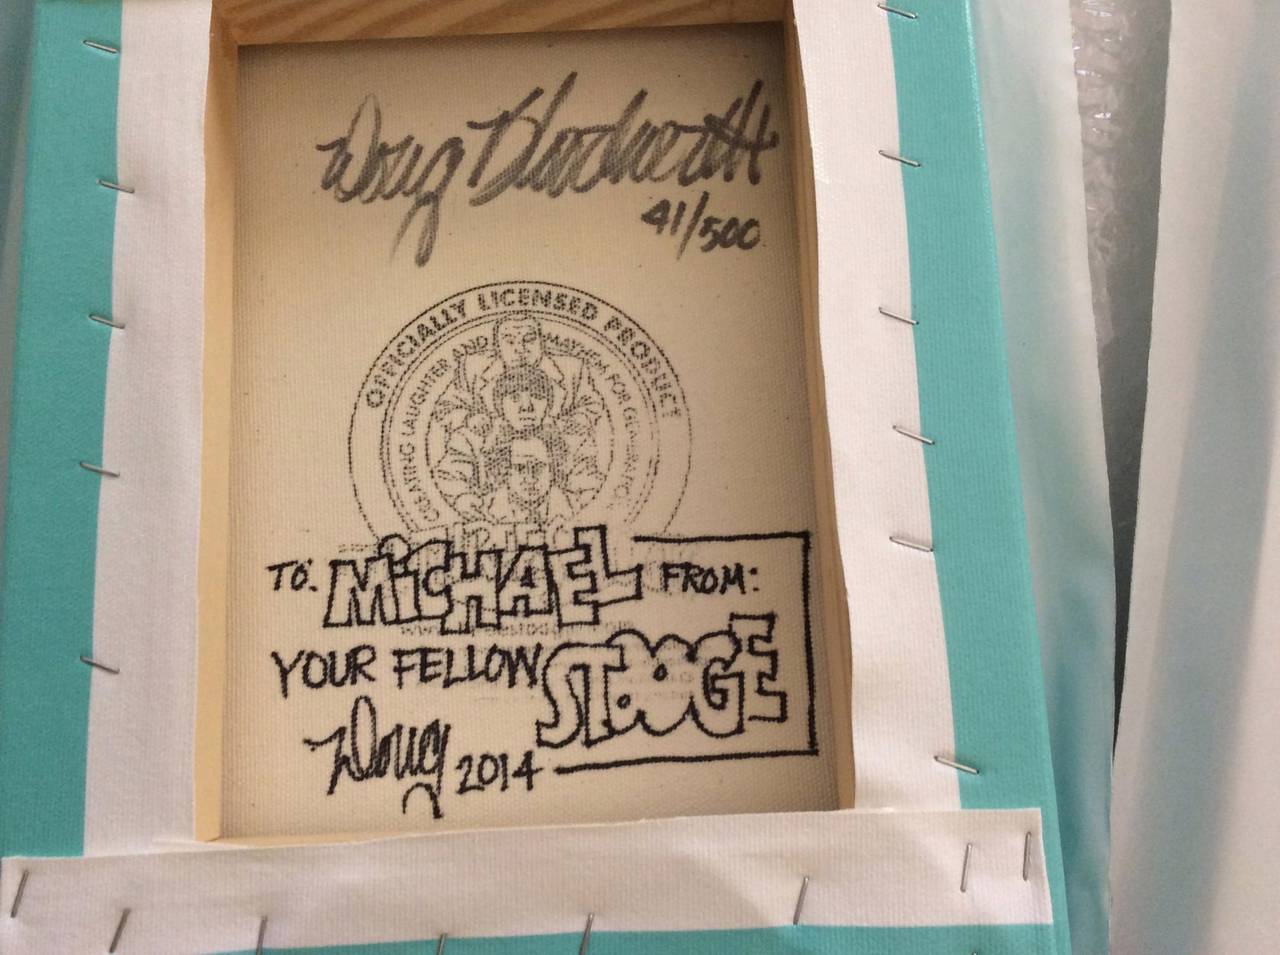 Doug
41/500
OFFICIALLY LICENSED PRODUCT
CREATING LAUGHTER AND MAYHEM FOR
TO: MiCHAEL FROM:
YOUR FELLOW STOOGE
Doug 2014